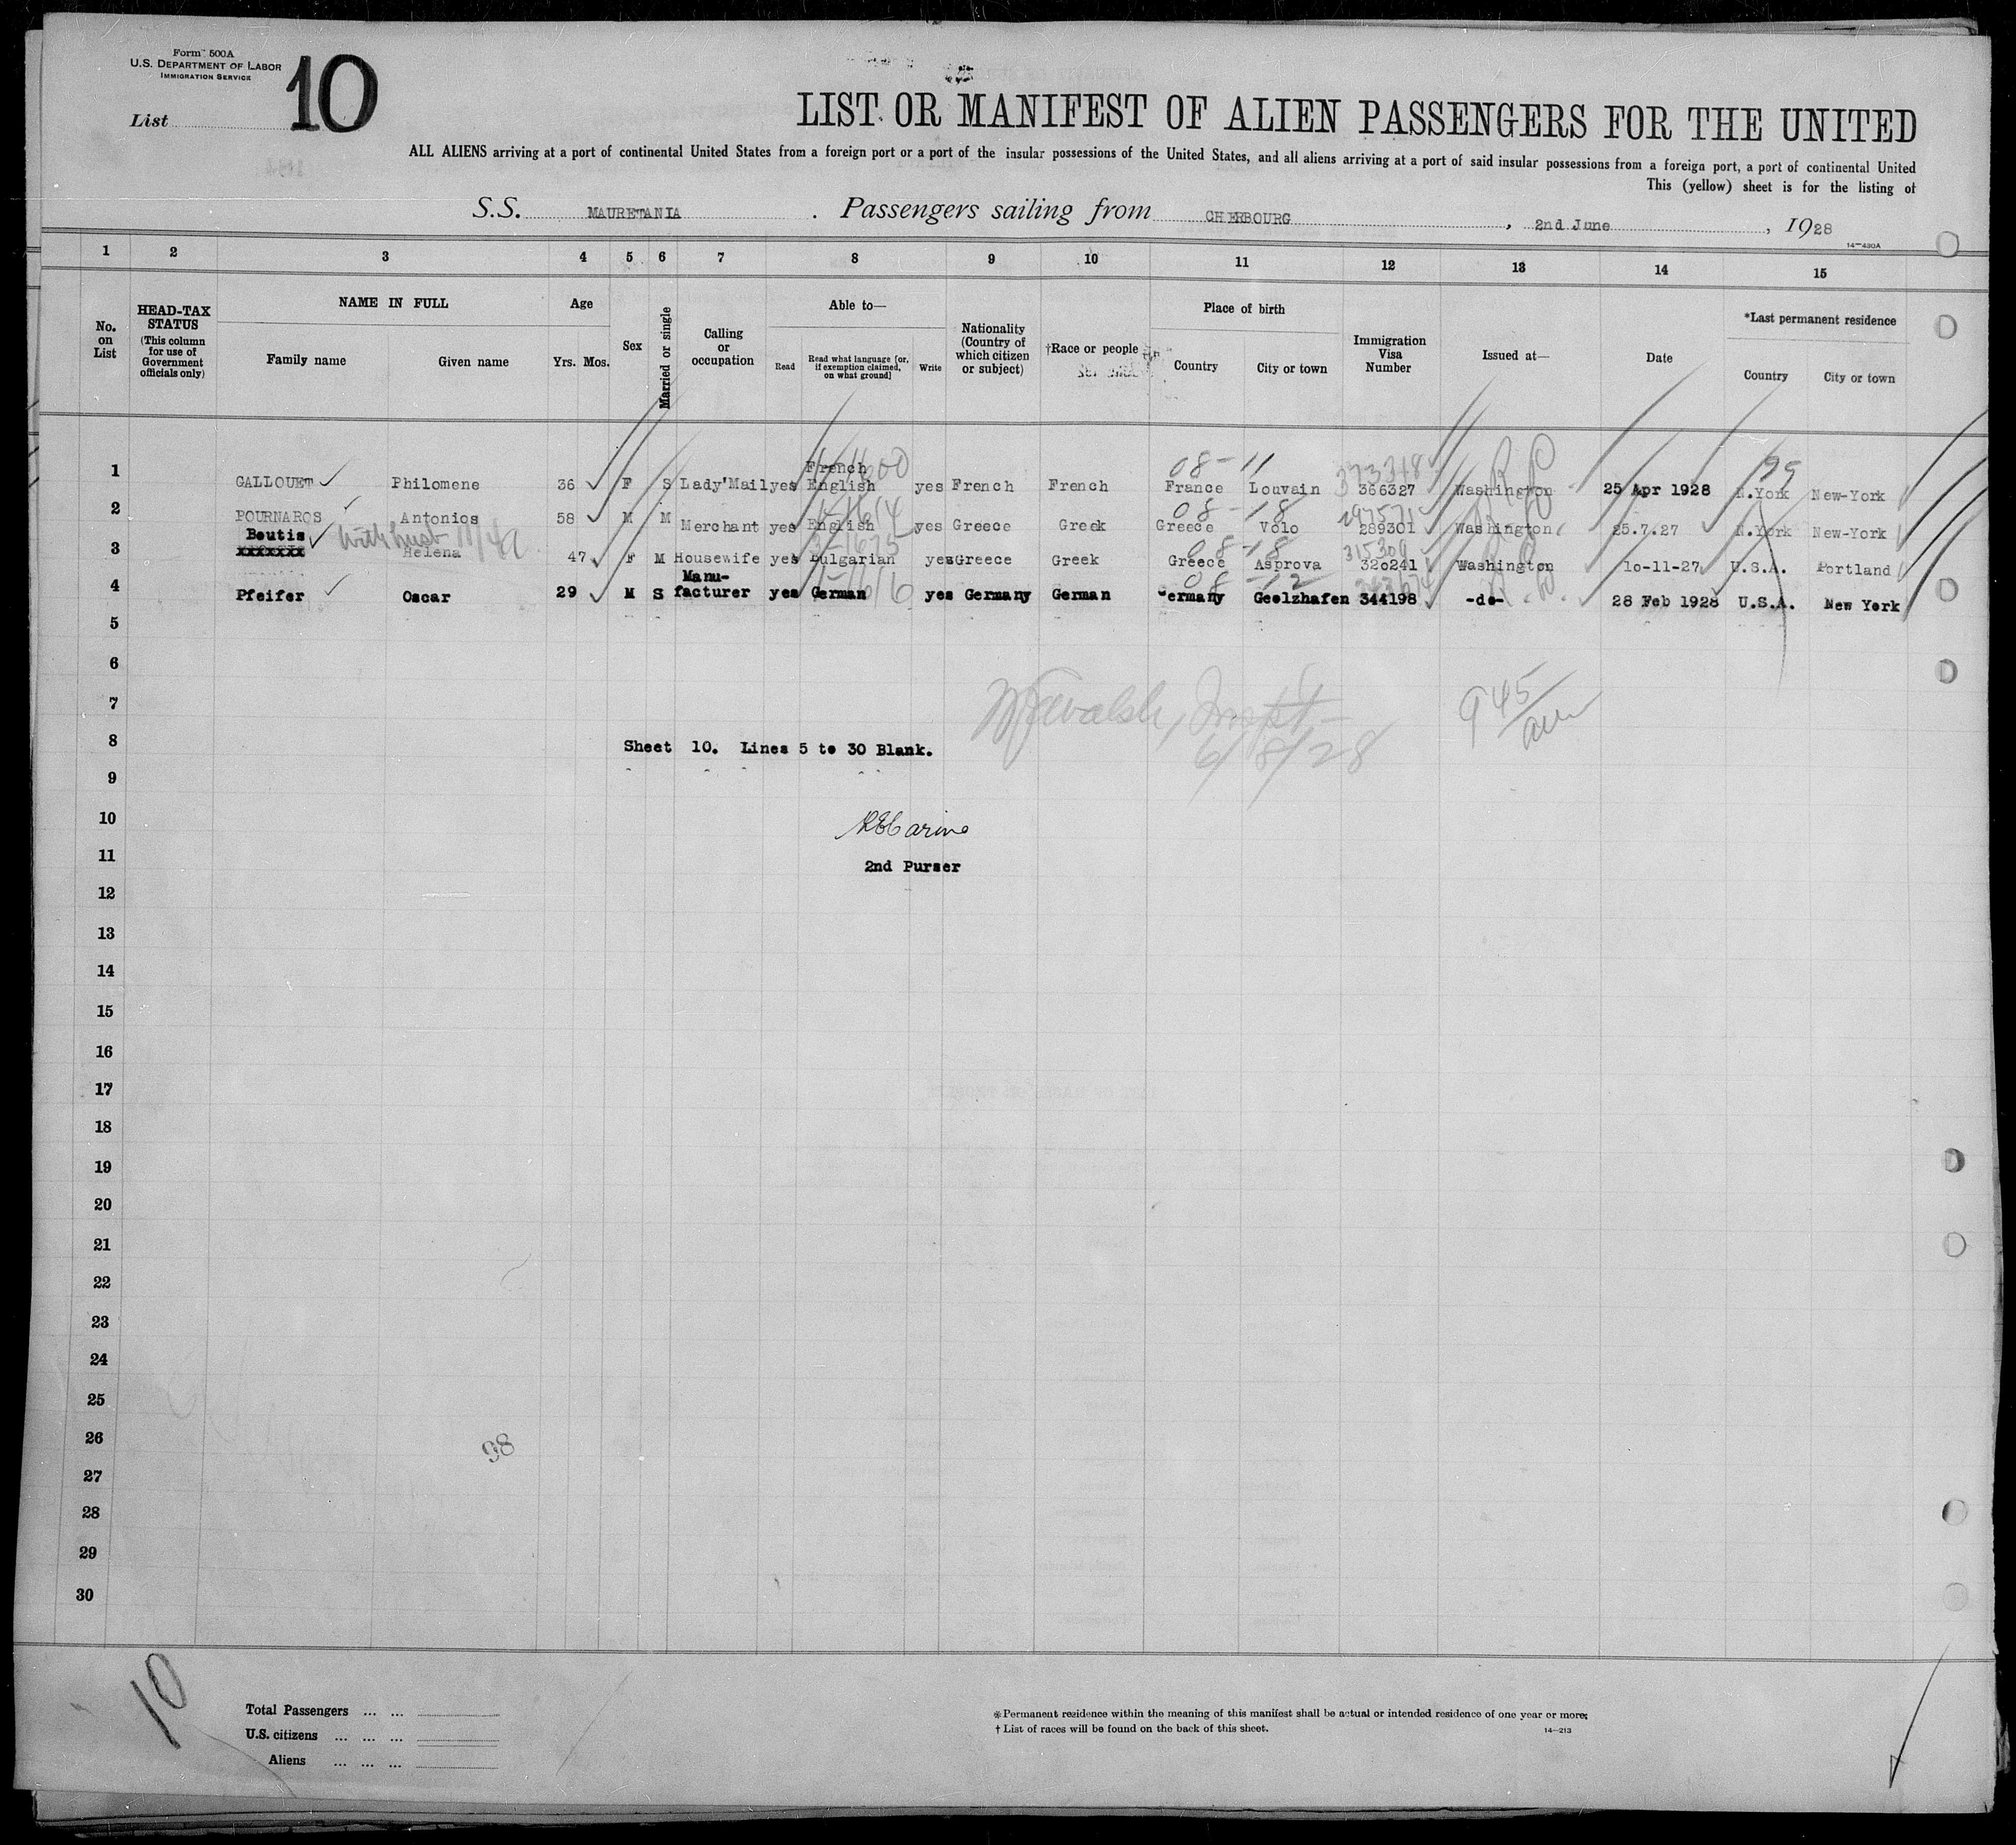 Form 500A
U.S. DEPARTMENT OF LABOR
IMMIGRATION SERVICE
List 10
LIST OR MANIFEST OF ALIEN PASSENGERS FOR THE UNITED
ALL ALIENS arriving at a port of continental United States from a foreign port or a port of the insular possessions of the United States, and all aliens arriving at a port of said insular possessions from a foreign port, a port of continental United
This (yellow) sheet is for the listing of
S.S. MAURETANIA . Passengers sailing from CHERBOURG , 2nd June , 1928
14-430A
1 2 3 4 5 6 7 8 9 10 11 12 13 14 15
No. on List
HEAD-TAX STATUS (This column for use of Government officials only)
NAME IN FULL
Family name Given name
Age
Yrs. Mos.
Sex
Married or single
Calling or occupation
Able to—
Read Read what language [or, if exemption claimed, on what ground] Write
Nationality (Country of which citizen or subject)
†Race or people
Place of birth
Country City or town
Immigration Visa Number
Issued at—
Date
*Last permanent residence
Country City or town
08-11 373348 RP 99
French
1 GALLOUET Philomene 36 F S Lady'Mail yes English yes French French France Louvain 366327 Washington 25 Apr 1928 N.York New-York
08-18
2 POURNAROS Antonios 58 M M Merchant yes English yes Greece Greek Greece Volo 289301 Washington 25.7.27 N.York New-York
Boutis 08-18 315309
3 xxxxxxx Helena 47 F M Housewife yes Bulgarian yes Greece Greek Greece Asprova 320241 Washington 10-11-27 U.S.A. Portland
Manu- 08-12
4 Pfeifer Oscar 29 M S facturer yes German yes Germany German Germany Geolzhafen 344198 -do- 28 Feb 1928 U.S.A. New York
5
6
7 Walsh, Inspt- 945
8 Sheet 10. Lines 5 to 30 Blank. 6/8/28
9
10
11 2nd Purser
12
13
14
15
16
17
18
19
20
21
22
23
24
25
26 98
27
28
29
30
10
Total Passengers ... ...
U.S. citizens ... ... ...
Aliens ... ... ...
*Permanent residence within the meaning of this manifest shall be actual or intended residence of one year or more.
†List of races will be found on the back of this sheet.
14-213